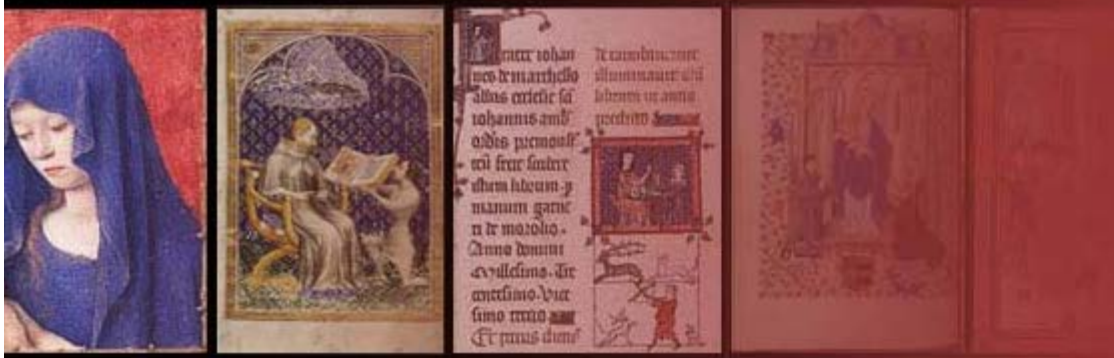 rater iohan
nes de marchello
abbas ecclesie sci
iohannis amb
ordis premonst
fecit scribere
istum librum p
manum garne
ri de morolio.
Anno domini
Millesimo. Tre
centesimo. Vice
simo tercio
Et petrus
de raimbaucourt
illuminauit
librum in anno
predicto